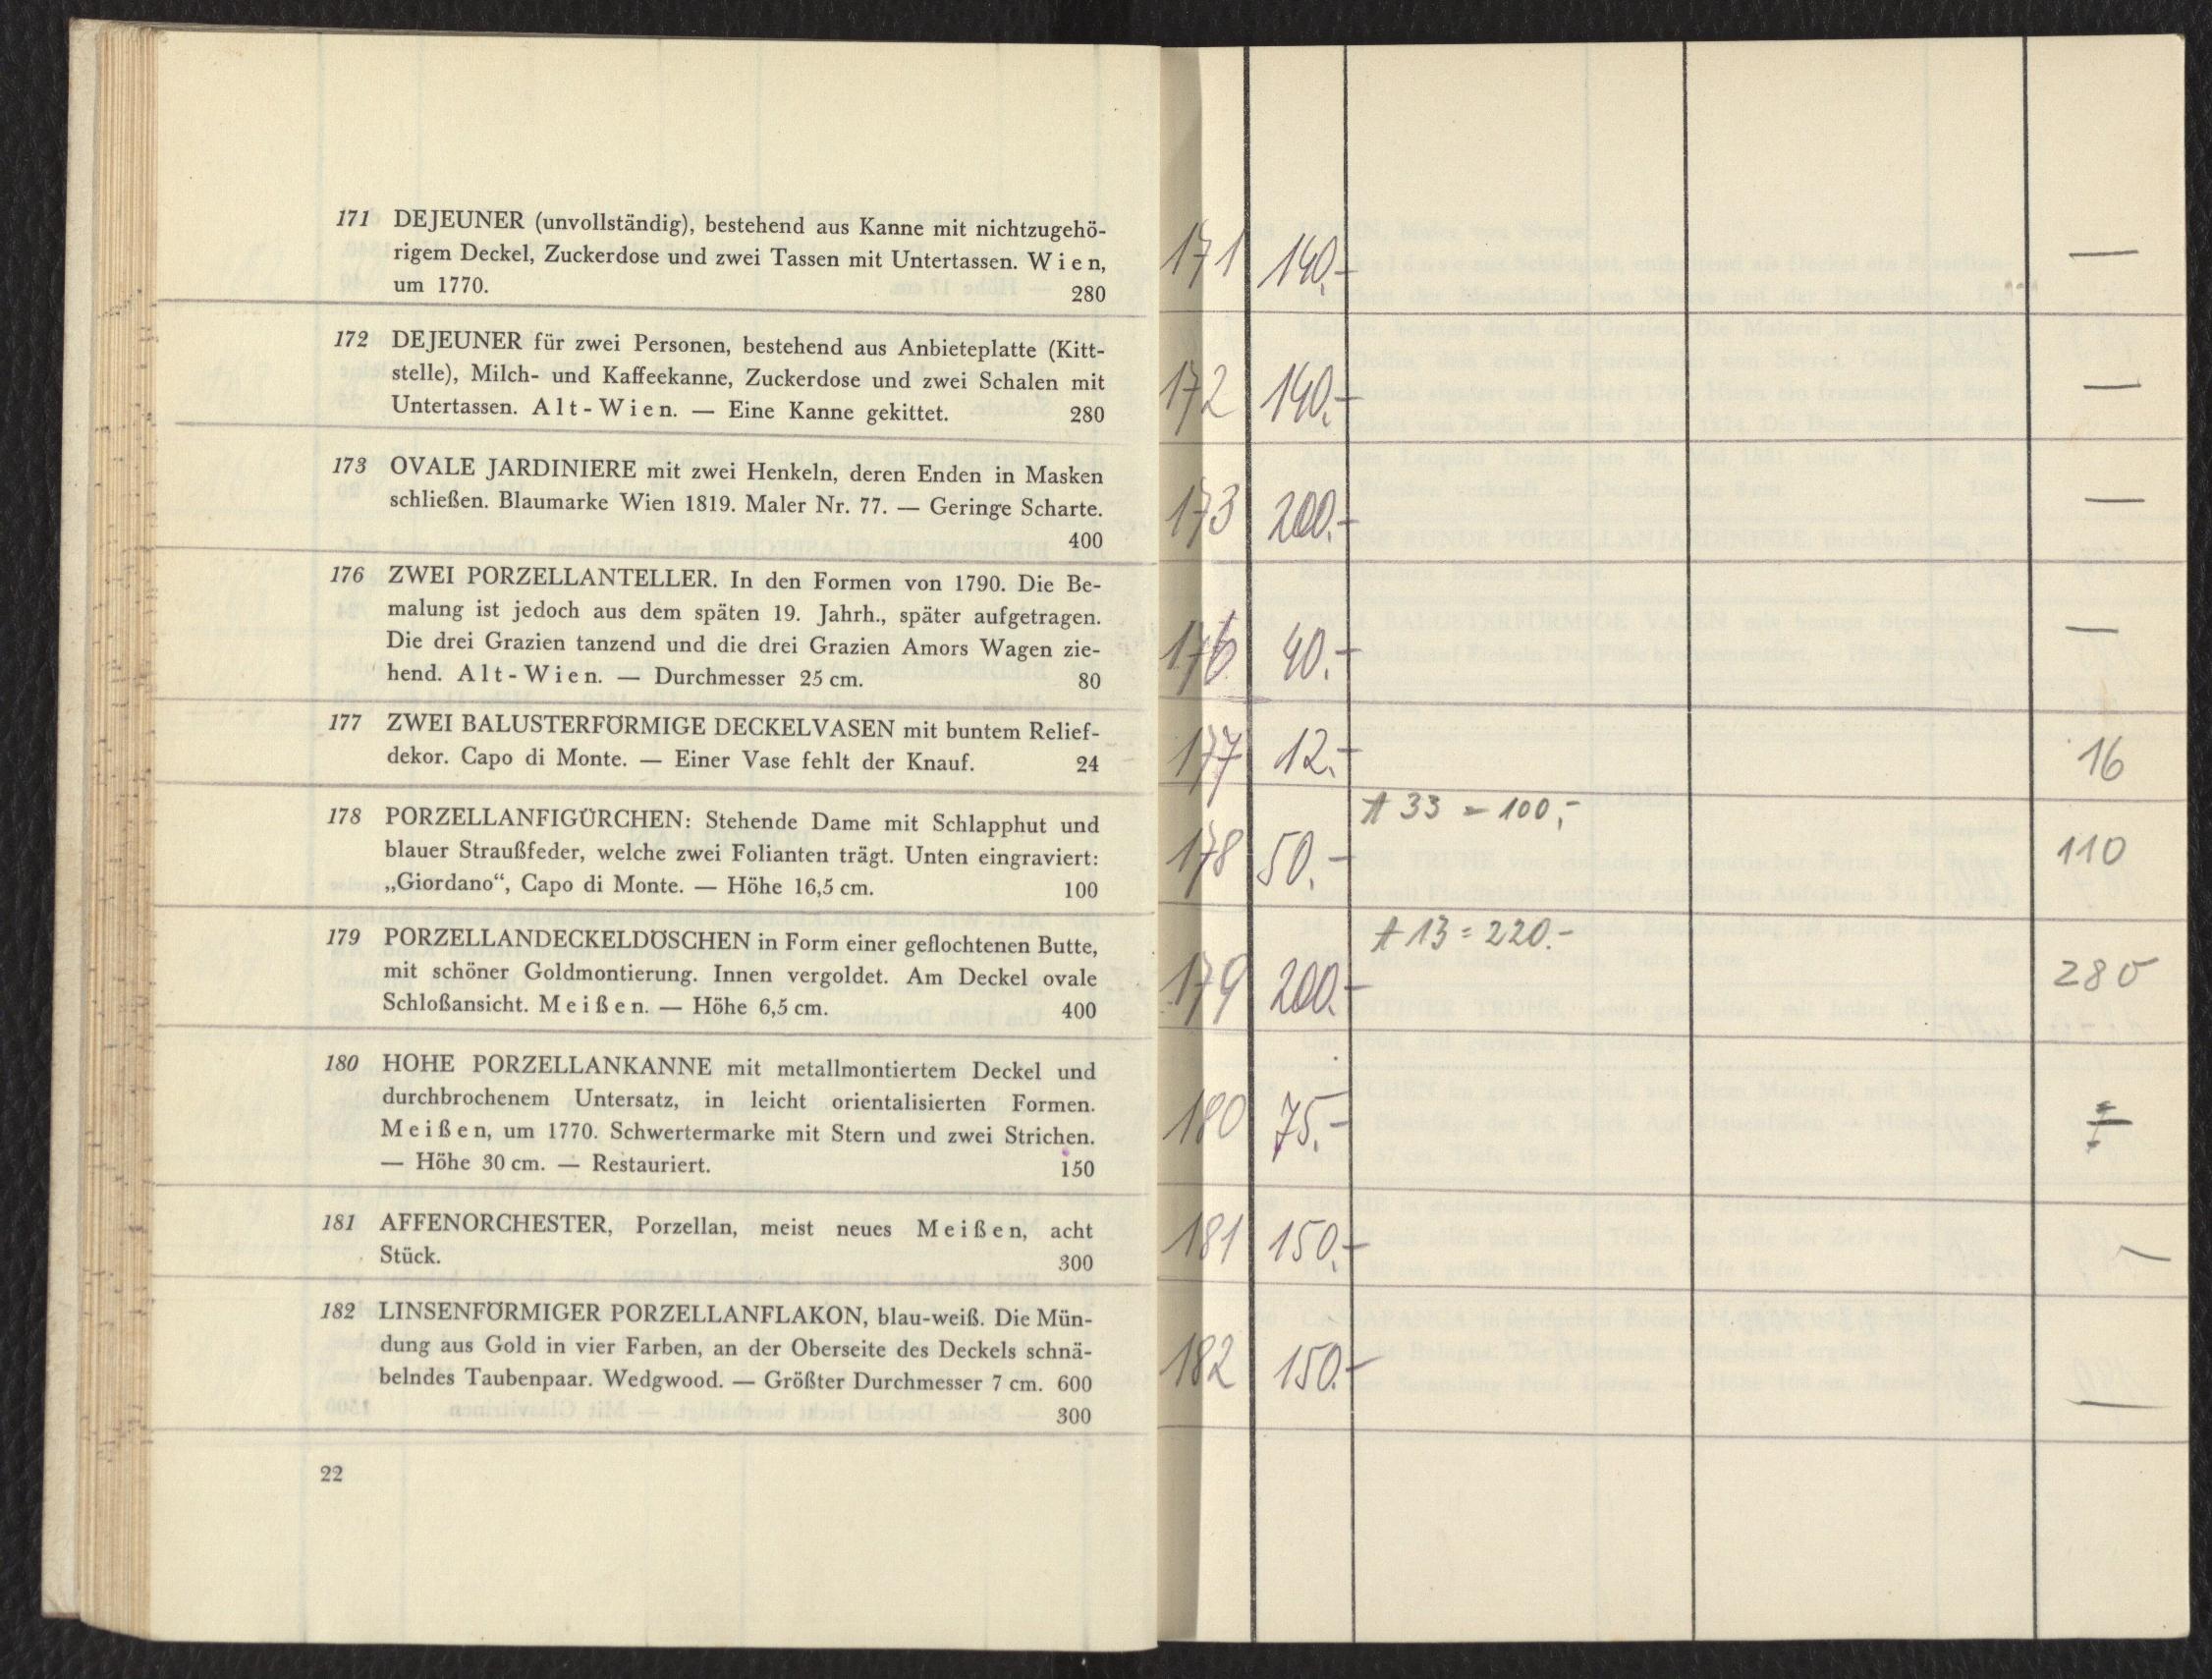 171 DEJEUNER (unvollständig), bestehend aus Kanne mit nichtzugehö-
rigem Deckel, Zuckerdose und zwei Tassen mit Untertassen. Wien,
um 1770. 280
172 DEJEUNER für zwei Personen, bestehend aus Anbieteplatte (Kitt-
stelle), Milch- und Kaffeekanne, Zuckerdose und zwei Schalen mit
Untertassen. Alt-Wien. — Eine Kanne gekittet. 280
173 OVALE JARDINIERE mit zwei Henkeln, deren Enden in Masken
schließen. Blaumarke Wien 1819. Maler Nr. 77. — Geringe Scharte.
400
176 ZWEI PORZELLANTELLER. In den Formen von 1790. Die Be-
malung ist jedoch aus dem späten 19. Jahrh., später aufgetragen.
Die drei Grazien tanzend und die drei Grazien Amors Wagen zie-
hend. Alt-Wien. — Durchmesser 25 cm. 80
177 ZWEI BALUSTERFÖRMIGE DECKELVASEN mit buntem Relief-
dekor. Capo di Monte. — Einer Vase fehlt der Knauf. 24
178 PORZELLANFIGÜRCHEN: Stehende Dame mit Schlapphut und
blauer Straußfeder, welche zwei Folianten trägt. Unten eingraviert:
„Giordano“, Capo di Monte. — Höhe 16,5 cm. 100
179 PORZELLANDECKELDÖSCHEN in Form einer geflochtenen Butte,
mit schöner Goldmontierung. Innen vergoldet. Am Deckel ovale
Schloßansicht. Meißen. — Höhe 6,5 cm. 400
180 HOHE PORZELLANKANNE mit metallmontiertem Deckel und
durchbrochenem Untersatz, in leicht orientalisierten Formen.
Meißen, um 1770. Schwertermarke mit Stern und zwei Strichen.
— Höhe 30 cm. — Restauriert. 150
181 AFFENORCHESTER, Porzellan, meist neues Meißen, acht
Stück. 300
182 LINSENFÖRMIGER PORZELLANFLAKON, blau-weiß. Die Mün-
dung aus Gold in vier Farben, an der Oberseite des Deckels schnä-
belndes Taubenpaar. Wedgwood. — Größter Durchmesser 7 cm. 600
300
22
171 140.- —
172 140.- —
173 200.- —
176 40.- —
177 12.- 16
33 = 100,-
178 50.- 110
13 = 220.-
179 200.- 280
180 75.-
181 150.- —
182 150.- —